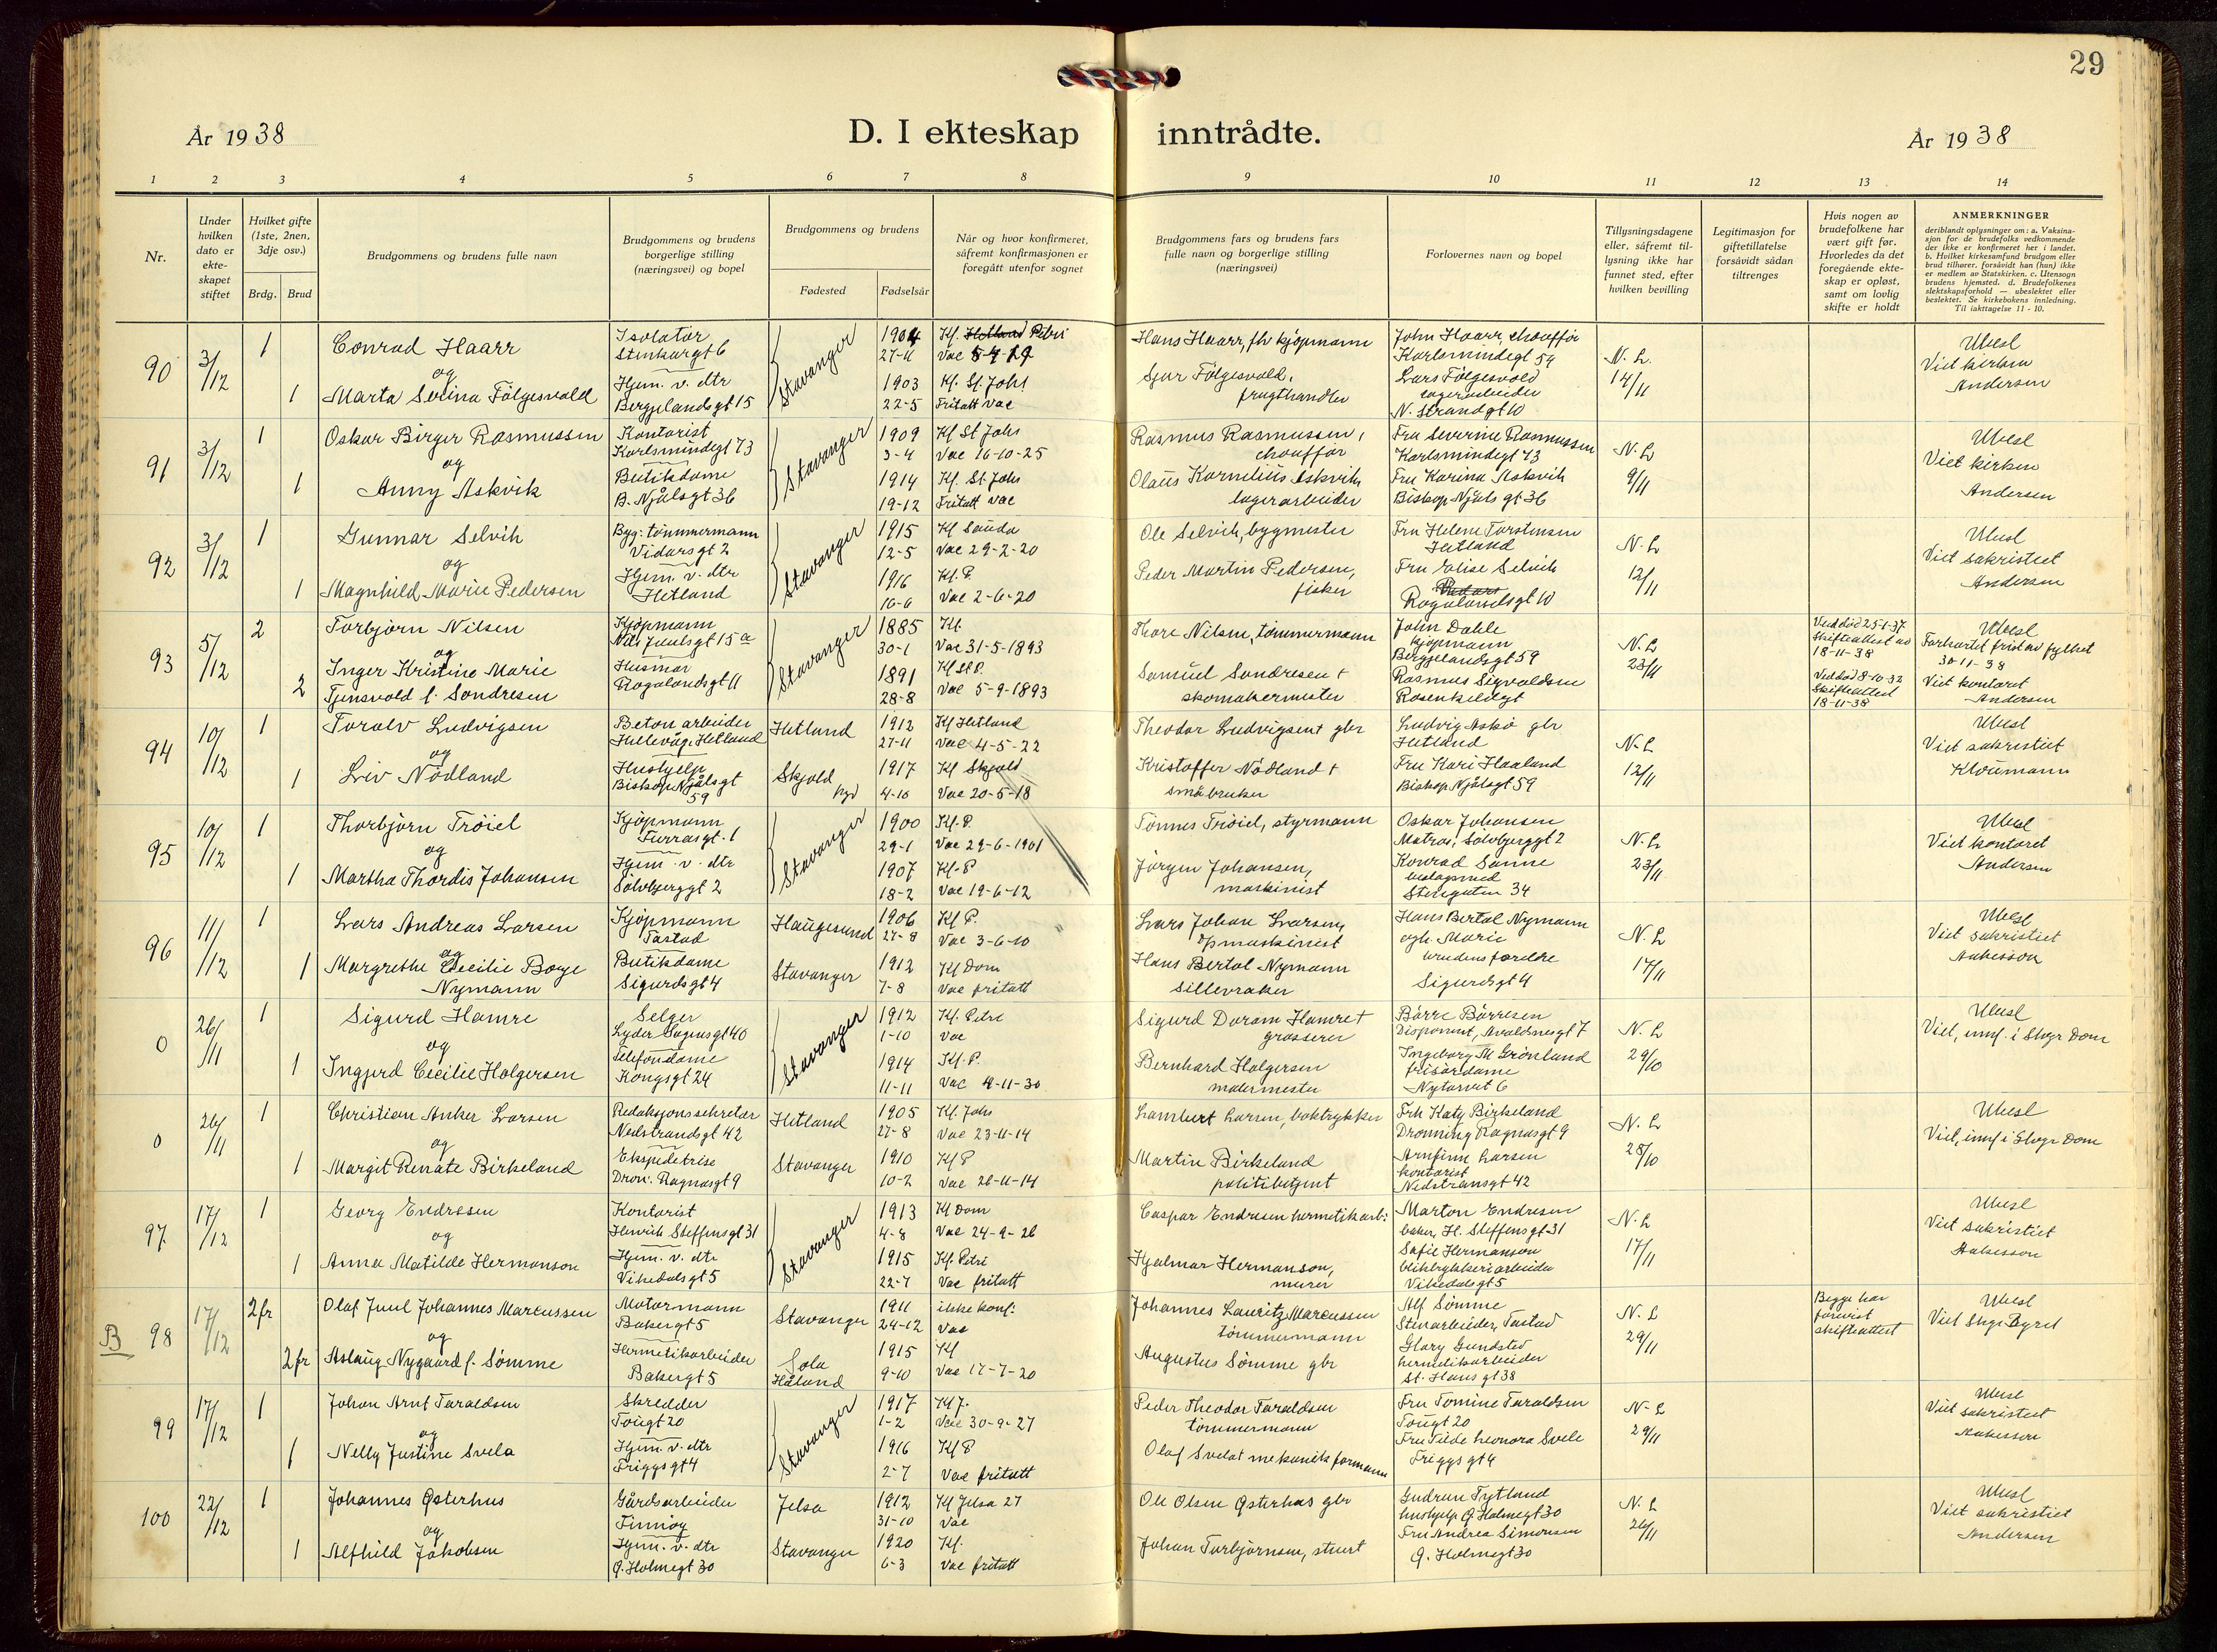 29
År 1938
D. I ekteskap inntrådte.
År 1938
1 2 3 4 5 6 7 8 9 10 11 12 13 14
Nr.
Under hvilken dato er ekteskapet stiftet
Hvilket gifte (1ste, 2nen, 3dje osv.)
Brdg. Brud
Brudgommens og brudens fulle navn
Brudgommens og brudens borgerlige stilling (næringsvei) og bopel
Brudgommens og brudens
Fødested Fødselsår
Når og hvor konfirmeret, såfremt konfirmasjonen er foregått utenfor sognet
Brudgommens fars og brudens fars fulle navn og borgerlige stilling (næringsvei)
Forlovernes navn og bopel
Tillysningsdagene eller, såfremt tillysning ikke har funnet sted, efter hvilken bevilling
Legitimasjon for giftetillatelse forsåvidt sådan tiltrenges
Hvis nogen av brudefolkene har vært gift før. Hvorledes da det foregående ekteskap er opløst, samt om lovlig skifte er holdt
ANMERKNINGER
deriblandt oplysninger om: a. Vaksinasjon for de brudefolks vedkommende der ikke er konfirmeret her i landet. b. Hvilket kirkesamfund brudgom eller brud tilhører, forsåvidt han (hun) ikke er medlem av Statskirken. c. Utensogn brudens hjemsted. d. Brudefolkenes slektskapsforhold — ubeslektet eller beslektet. Se kirkebokens innledning. Til iakttagelse 11 - 10.
90 3/12 1 Conrad Haarr Isolatør Stenkargt 6 Stavanger 1904 27-11 Kf. Hetland Petri Vac Hans Haarr, fhv kjøpmann John Haarr, chauffør Karlsmindegt 54 N. L. 14/11 Ubesl Viet kirken Andersen
og
1 Marta Serina Fölgesvold Hjem. v. dtr Bergjelandsgt 15 1903 22-5 Kf. St. Johs Fritatt vac Sjur Fölgesvold, frugthandler Lars Fölgesvold lagerarbeider N. Strandgt 10
91 3/12 1 Oskar Birger Rasmussen Kontorist Karlsmindegt 73 Stavanger 1909 3-4 Kf St Johs Vac 16-10-25 Rasmus Rasmussen, chauffør Fru Severine Rasmussen Karlsmindegt 73 N. L 9/11 Ubesl Viet kirken Andersen
og
1 Anny Askvik Butikdame B. Njålsgt 36 1914 19-12 Kf. St. Johs Fritatt vac Olaus Kornelius Askvik, lagerarbeider Fru Karina Askvik Biskop Njåls gt 36
92 3/12 1 Gunnar Selvik Byg: tømmermann Vidarsgt 2 Stavanger 1915 12-5 Kf Sauda Vac 29-2-20 Ole Selvik, bygmester Fru Helene Torstensen Hetland N. L 12/11 Ubesl Viet sakristiet Andersen
og
1 Magnhild Marie Pedersen Hjem. v. dtr Hetland 1916 16-6 Kf. P. Vac 2-6-20 Peder Martin Pedersen, fisker Fru Elise Selvik Rogalandsgt 10
93 5/12 2 Torbjørn Nilsen Kjøpmann Nils Juulsgt 15 a Stavanger 1885 30-1 Kf. Vac 31-5-1893 Thore Nilsen, tømmermann John Dahle kjøpmann Bergjelandsgt 59 N. L 23/11 Ved død 25-1-37 Skifteattest av 18-11-38 Ubesl Forkortet frist av fylket 30-11-38 Viet kontoret Andersen
og
2 Inger Kristine Marie Tjensvold f. Sondresen Husmor Rogalandsgt 11 1891 28-8 Kf St P. Vac 5-9-1893 Samuel Sondresen + skomakermester Rasmus Sigvaldsen Rosenkildegt Ved død 8-10-32 Skifteattest 18-11-38
94 10/12 1 Toralv Ludvigsen Betonarbeider Hillevåg, Hetland Hetland 1912 27-11 Kf Hetland Vac 4-5-22 Theodor Ludvigsen + gbr Ludvig Askø gbr Hetland N. L 12/11 Ubesl Viet sakristiet Kloumann
og
1 Liv Nödland Hushjelp Biskop Njålsgt 59 Skjold 1917 4-10 Kf Skjold Vac 20-5-18 Kristoffer Nödland + småbruker Fru Kari Haaland Biskop Njålsgt 59
95 10/12 1 Thorbjörn Tröiel Kjøpmann Furrasgt. 1 Stavanger 1900 29-1 Kf. P. Vac 29-6-1901 Tönnes Tröiel, styrmann Oskar Johansen Matros, Solvbjerggt 2 N. L 23/11 Ubesl Viet kontoret Andersen
og
1 Martha Thordis Johansen Hjem. v. dtr Sölvbjerggt 2 1907 18-2 Kf. P Vac 19-6-12 Jörgen Johansen, maskinist Konrad Sanne beslagsmed Stengaten 34
96 11/12 1 Lars Andreas Larsen Kjøpmann Tastad Haugesund 1906 27-8 Kf P. Vac 3-6-10 Lars Johan Larsen, opmaskinist Hans Bertal Nymann og h. Marie brudens foreldre Sigurdsgt 4 N. L 17/11 Ubesl Viet sakristiet Aakesson
og
1 Margrethe Cecilie Boye Nymann Butikdame Sigurdsgt 4 Stavanger 1912 7-8 Kf Dom Vac fritatt Hans Bertal Nymann sillevraker
0 26/11 1 Sigurd Hamre Selger Lyder Sagensgt 40 Stavanger 1912 1-10 Kf. Petri Vac Sigurd Doram Hamre + grosserer Börre Börresen Disponent, Avaldsnesgt 7 N. L 29/10 Ubesl Viet, innf. i Stvgr Dom
og
1 Ingjerd Cecilie Holgersen Telefondame Kongsgt 24 1914 11-11 Kf. P. Vac 4-11-30 Bernhard Holgersen malermester Ingeborg M Grönland frisördame Nytorvet 6
0 26/11 1 Christian Anker Larsen Redaksjonssekretær Nedstrandsgt 42 Hetland 1905 27-8 Kf. Johs Vac 23-11-14 Lambert Larsen, boktrykker Frk Katy Birkeland Dronning Ragnasgt 9 N. L 28/10 Ubesl Viet, innf i Stvgr Dom
og
1 Margit Renate Birkeland Ekspeditrise Dron. Ragnasgt 9 Stavanger 1910 10-2 Kf P Vac 26-11-14 Martin Birkeland politibetjent Arnfinn Larsen kontorist Nedstransgt 42
97 17/12 1 Georg Endresen Kontorist Henrik Steffensgt 31 Stavanger 1913 4-8 Kf Dom Vac 24-9-26 Caspar Endresen hermetikarb: Marton Endresen baker, H. Steffensgt 31 N. L 17/11 Ubesl Viet sakristiet Aakesson
og
1 Anna Matilde Hermanson Hjem. v. dtr Vikedalsgt 5 1915 22-7 Kf. Petri Vac fritatt Hjalmar Hermanson, murer Sofie Hermanson bliktrykkeriarbeider Vikedalsgt 5
B 98 17/12 2 fr Olaf Juul Johannes Marcussen Motormann Bakergt 5 Stavanger 1911 24-12 ikke konf: Vac Johannes Lauritz Marcussen tömmermann Alf Sömme Stenarbeider, Tastad N. L 29/11 Begge har forevist skifteattest Ubesl Viet Stvgr Byret
og
2 fr Aslaug Nygaard f. Sömme Hermetikarbeider Bakergt 5 Sola Håland 1915 9-10 Kf Vac 17-7-20 Augustus Sömme gbr Glory Gundsted hermetikarbeider St. Hans gt 38
99 17/12 1 Johan Arnt Taraldsen Skredder Tougt 20 Stavanger 1917 1-2 Kf J. Vac 30-9-27 Peder Theodor Taraldsen tömmermann Fru Tomine Taraldsen Tougt 20 N. L 29/11 Ubesl Viet sakristiet Aakesson
og
1 Nelly Justine Svela Hjem. v. dtr Friggsgt 4 1916 2-7 Kf P Vac fritatt Olaf Svela + mekanik formann Fru Tilde Leonora Svele Friggsgt 4
100 22/12 1 Johannes Østerhus Gårdsarbeider Finnöy Jelsa 1912 31-10 Kf Jelsa 27 Vac Ole Olsen Østerhus gbr Gudrun Tytland hushjelp Q. Holmegt 30 N. L 26/11 Ubesl Viet sakristiet Andersen
og
1 Alfhild Jakobsen Hjem. v. dtr Q. Holmegt 30 Stavanger 1920 6-3 Kf. Vac fritatt Johan Torbjörnsen, stuert Fru Andrea Simonsen Q. Holmegt 30